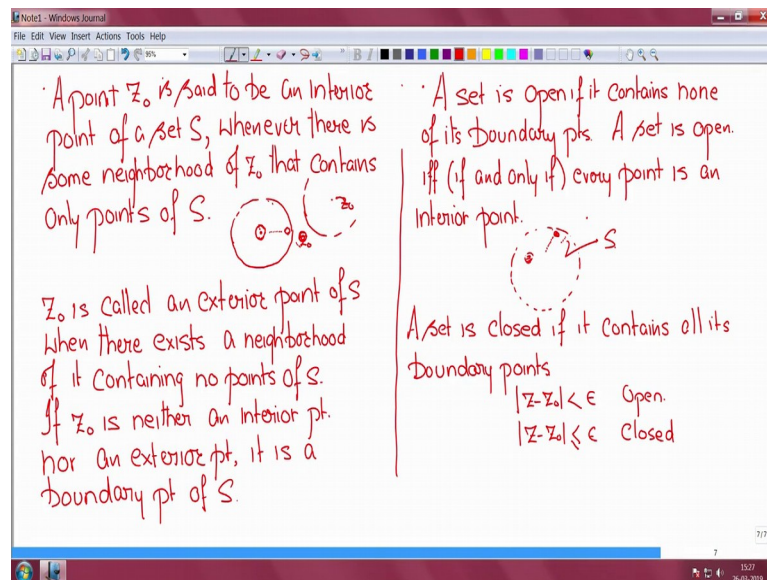 Note1 - Windows Journal
File Edit View Insert Actions Tools Help
95%
· A point Z₀ is said to be an interior
point of a set S, whenever there is
some neighborhood of Z₀ that contains
only points of S.
Z₀
Z₀
Z₀ is called an exterior point of S
when there exists a neighborhood
of it containing no points of S.
If Z₀ is neither an interior pt.
nor an exterior pt, it is a
boundary pt of S.
· A set is open if it contains none
of its boundary pts. A set is open.
iff (if and only if) every point is an
interior point.
S
A set is closed if it contains all its
boundary points
|Z-Z₀| < ε Open.
|Z-Z₀| ≤ ε Closed
7/7
7
15:27
26-03-2019